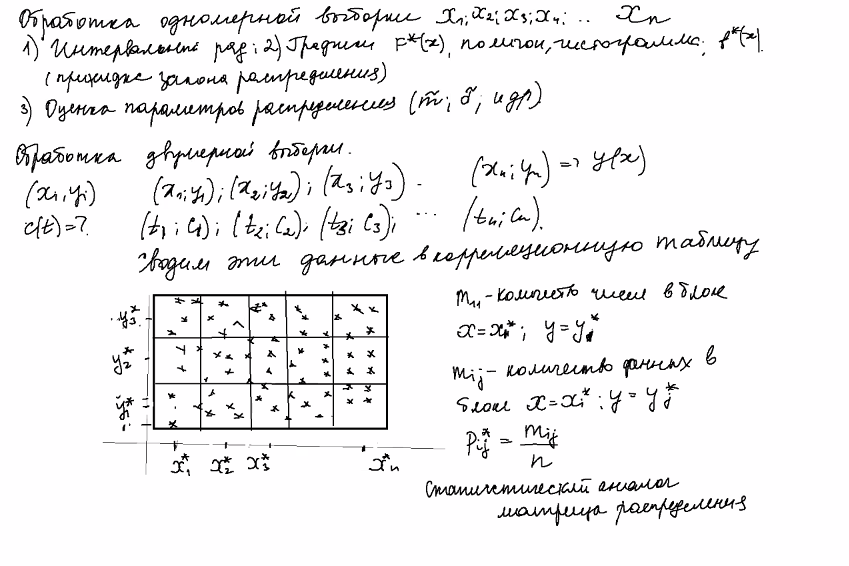 Обработка одномерной выборки x₁; x₂; x₃; x₄; .. xₙ
1) Интервальный ряд; 2) Графики F*(x), полигон, гистограмма; f*(x)
( закона распределения)
3) Оценка параметров распределения (m̃; σ̃; и др)
Обработка двумерной выборки.
(xᵢ, yᵢ) (x₁; y₁); (x₂; y₂); (x₃; y₃) . (xₙ; yₙ) => y(x)
c(t)=? (t₁; c₁); (t₂; c₂); (t₃; c₃); ... (tₙ; cₙ).
Сводим эти данные в корреляционную таблицу
m₁₁ - количество чисел в блок
y₃*
x = x₁*; y = y₁*
y₂*
mᵢⱼ - количество данных в
блок x = xᵢ*; y = yⱼ*
y₁*
Pᵢⱼ* = mᵢⱼ / n
x₁* x₂* x₃* x*ₙ
Статистический аналог
матрица распределения